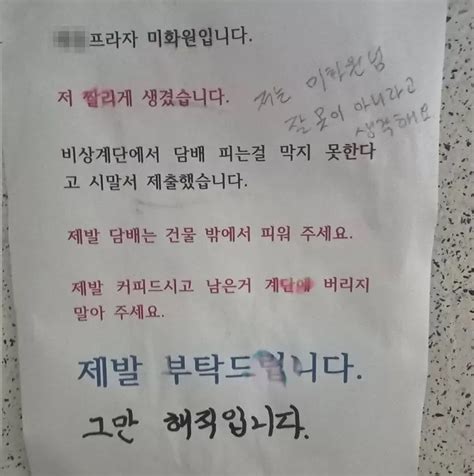 프라자 미화원입니다.
저 짤리게 생겼습니다.
저는 미화원님
잘못이 아니라고
생각해요
비상계단에서 담배 피는걸 막지 못한다
고 시말서 제출했습니다.
제발 담배는 건물 밖에서 피워 주세요.
제발 커피드시고 남은거 계단에 버리지
말아 주세요.
제발 부탁드립니다.
그만 해직입니다.